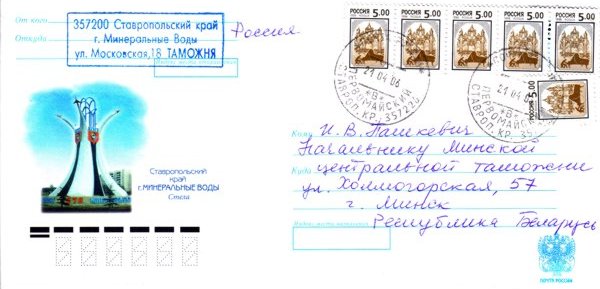 От кого
Откуда
357200 Ставропольский край
г. Минеральные Воды
ул. Московская, 18 ТАМОЖНЯ
Россия
РОССИЯ 5.00
РОССИЯ 5.00
РОССИЯ 5.00
РОССИЯ 5.00
РОССИЯ 5.00
РОССИЯ 5.00
21 04 06
*В*
ПЕРВОМАЙСКИЙ
СТАВРОП. КР. 357
21 04 0
*В*
ПЕРВОМАЙСКИЙ
СТАВРОП. КР. 357
Ставропольский
край
г. МИНЕРАЛЬНЫЕ ВОДЫ
Стела
Кому
И. В. Пашкевич
Начальнику Минской
Куда
центральной таможни
ул. Холмогорская, 57
г. Минск
Республика Беларусь
ПОЧТА РОССИИ